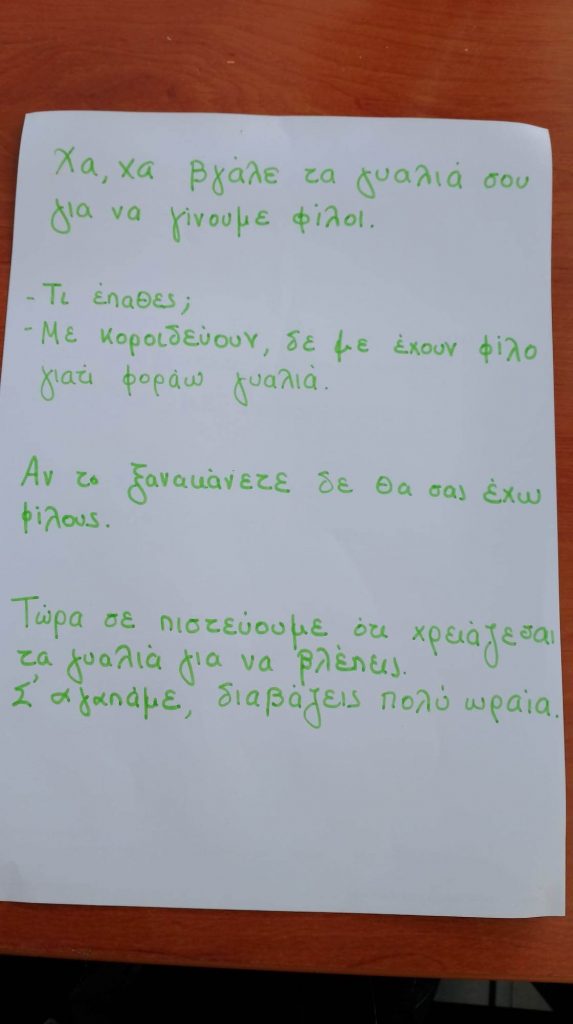 Χα, χα βγάλε τα γυαλιά σου
για να γίνουμε φίλοι.
- Τι έπαθες;
- Με κοροιδεύουν, δε με έχουν φίλο
γιατί φοράω γυαλιά.
Αν το ξανακάνετε δε θα σας έχω
φίλους.
Τώρα σε πιστεύουμε ότι χρειάζεσαι
τα γυαλιά για να βλέπεις.
Σ' αγαπάμε, διαβάζεις πολύ ωραία.